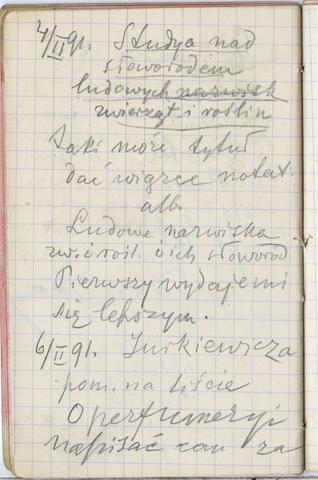 4/II 91. Studya nad
słoworodem
ludowych nazwisk
zwierząt i roślin
Taki może tytuł
dać wiązce notat.
alb.
Ludowe nazwiska
zw. i rośl. i ich słoworód
Pierwszy wydaje mi
się lepszym.
6/II 91. Jurkiewicza
pom. na liście
O perfumeryi
napisać za